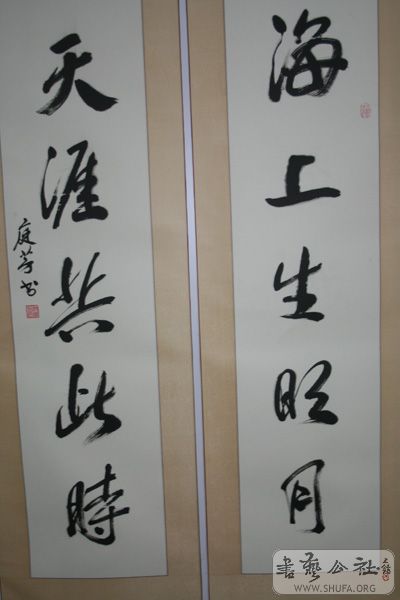 海上生明月
天涯共此時
庭芳书
書藝公社
WWW.SHUFA.ORG